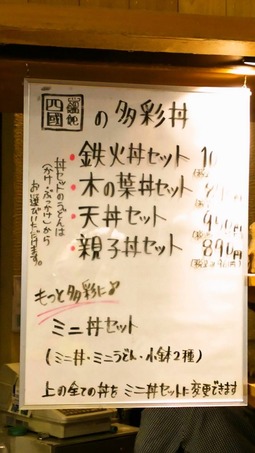 四國 の多彩丼
・鉄火丼セット 10
・木の葉丼セット
・天丼セット 950円
・親子丼セット 890円
丼セットのうどんは
(かけ・ぶっかけ)から
お選びいただけます。
もっと多彩に
ミニ丼セット
(ミニ丼・ミニうどん・小鉢2種)
上の全ての丼をミニ丼セットに変更できます